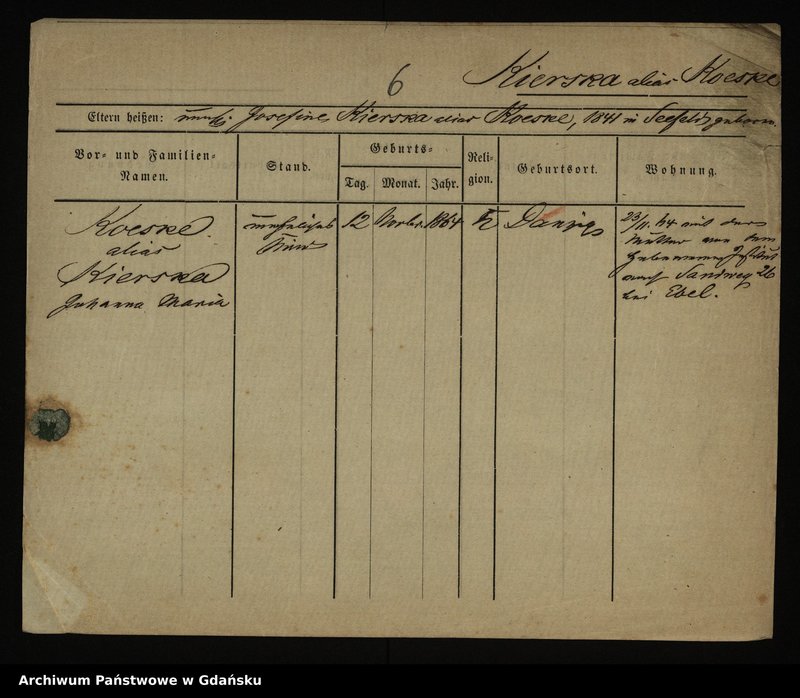 6
Kierska alias Koeske
Eltern heißen: unverh. Josefine Kierska alias Koeske, 1841 in Seefeld geboren.
Vor- und Familien-
Namen.
Stand.
Geburts-
Tag. Monat. Jahr.
Reli-
gion.
Geburtsort.
Wohnung.
Koeske
alias
Kierska
Johanna Maria
uneheliches
Kind
12 Novbr. 1864
K
Danzig
23/11. 64 mit der
Mutter aus dem
Hebammen Institut
nach Sandweg 26
bei Ebel.
Archiwum Państwowe w Gdańsku